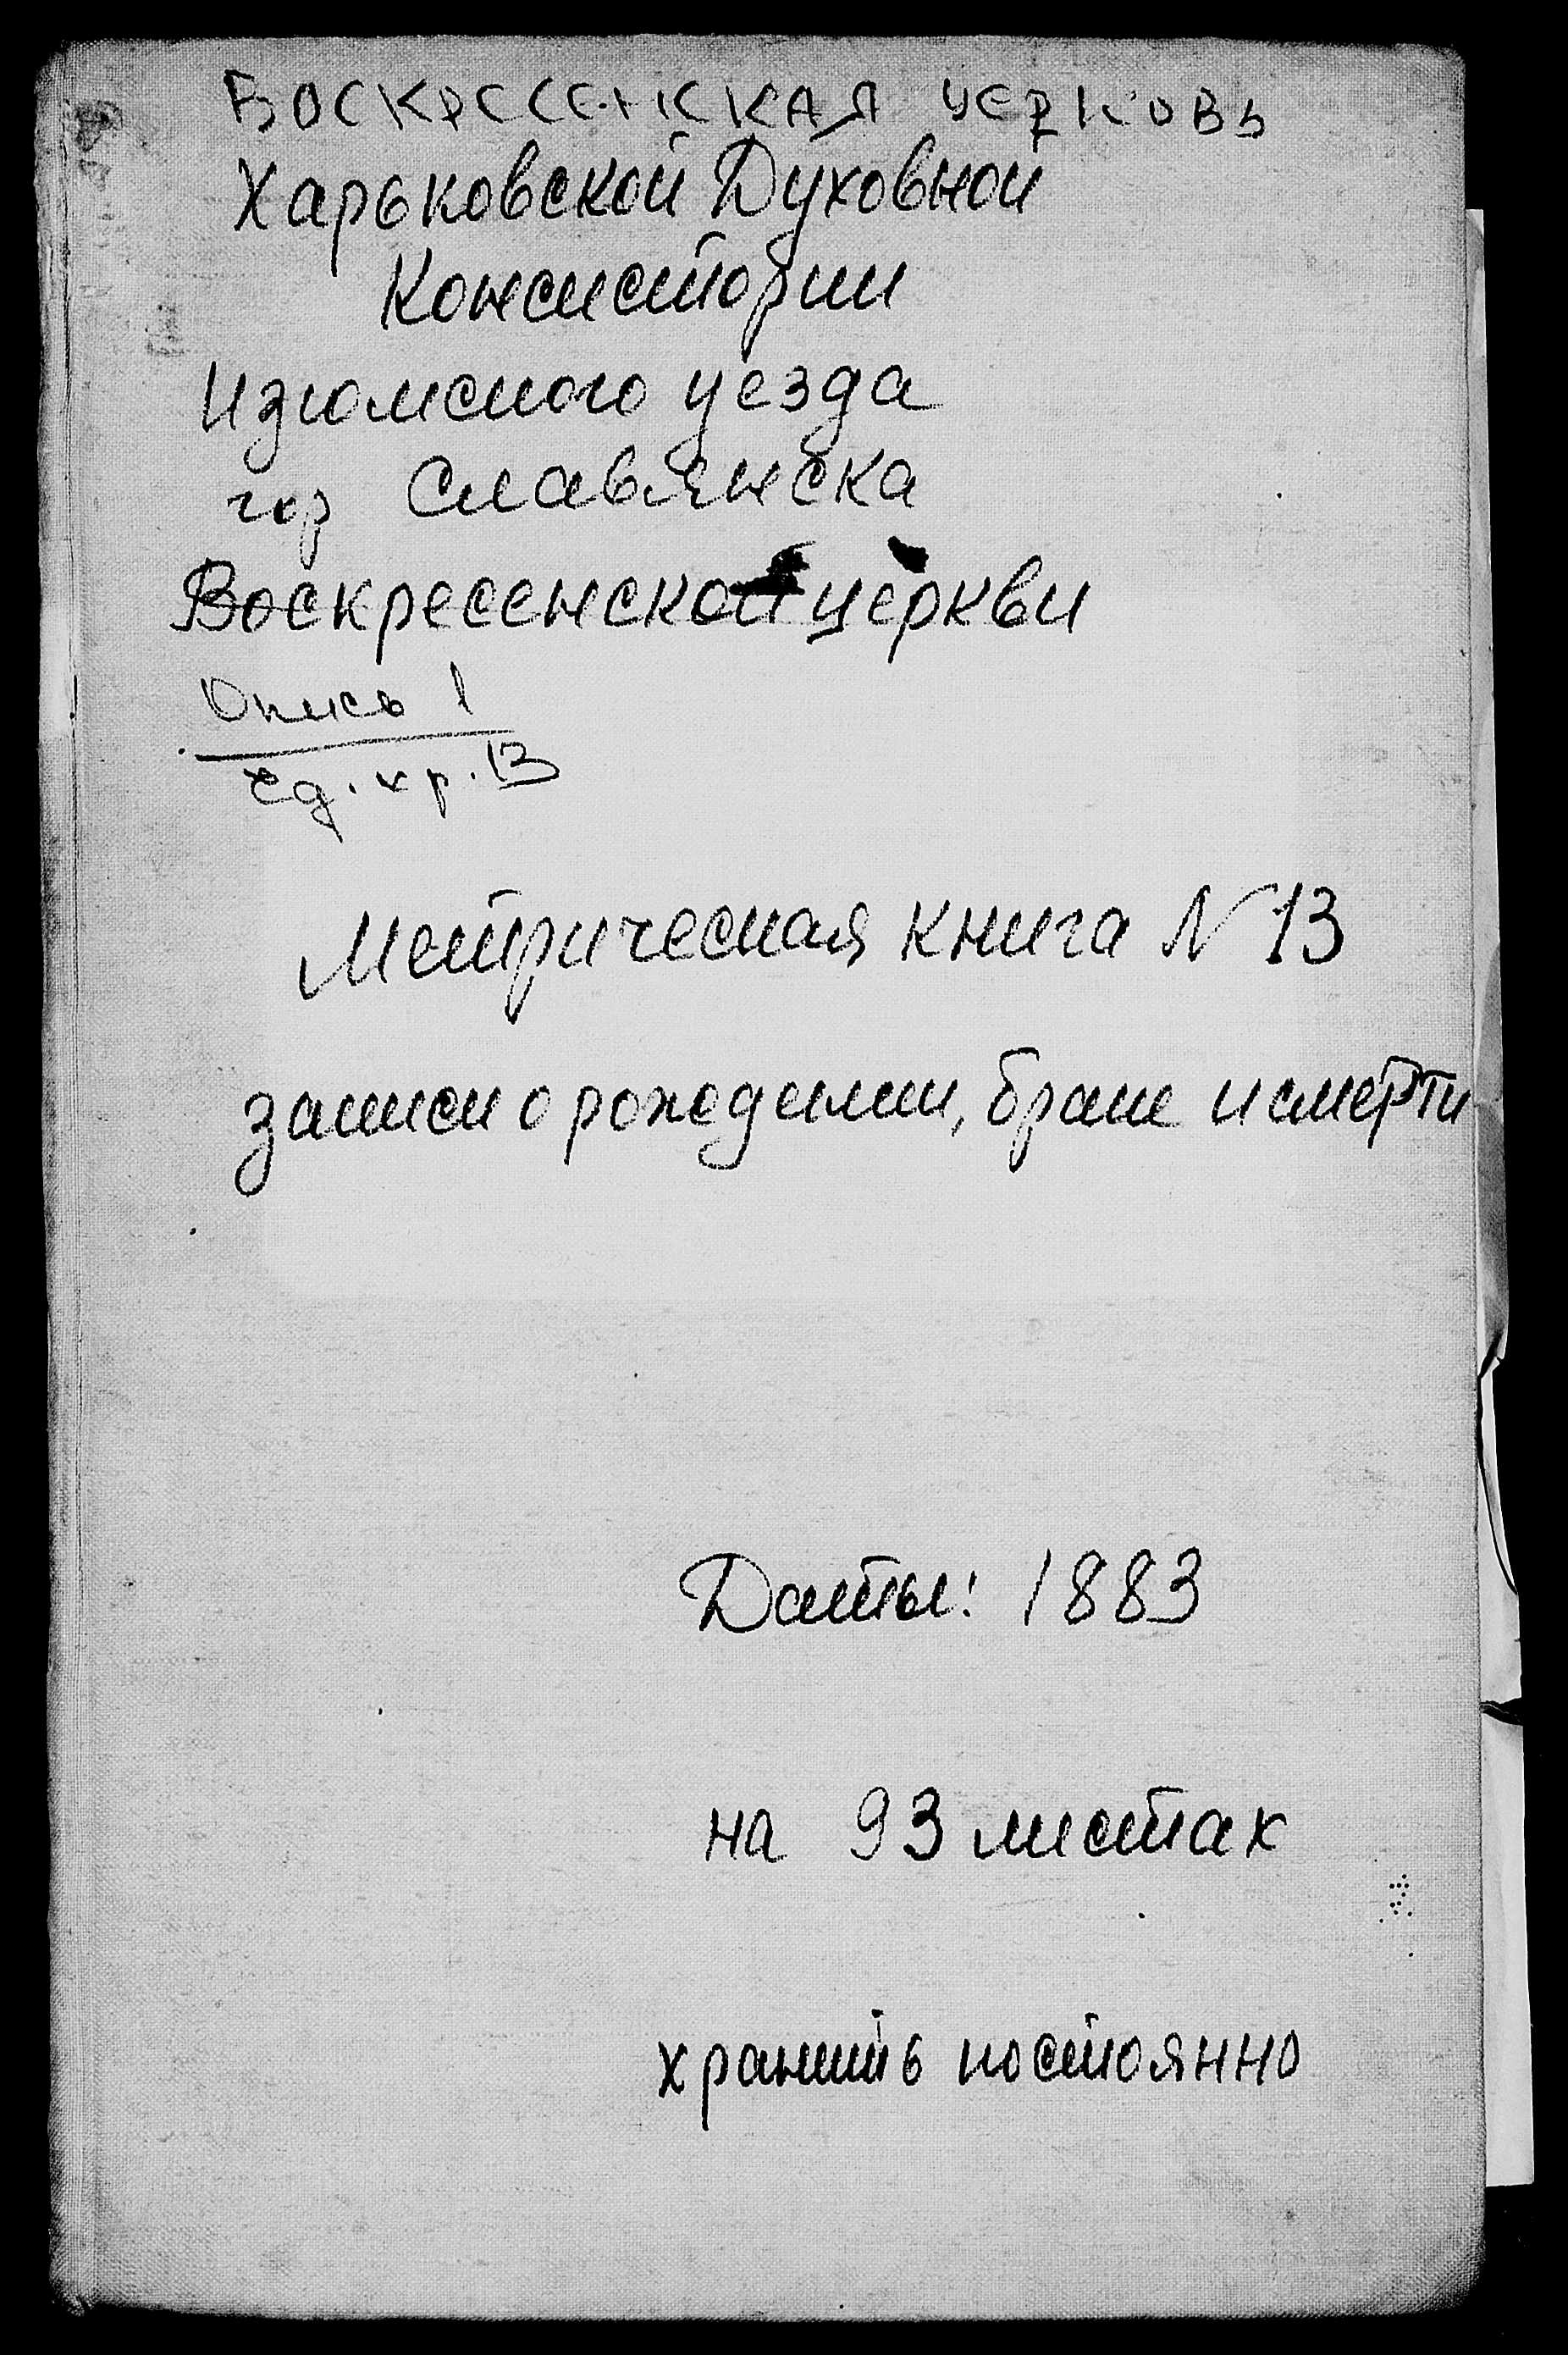 ВОСКРЕСЕНСКАЯ ЦЕРКОВЬ
Харьковской Духовной
Консистории
Изюмского уезда
гор Славянска
Воскресенской церкви
Опись 1
ед. хр. 13
Метрическая книга N 13
записи о рождении, браке и смерти
Даты: 1883
на 93 листах
хранить постоянно